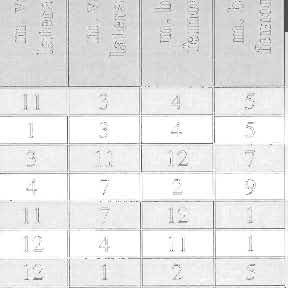 m. v
latera
m. v
latera
m. b
femor
m. b
femor
11 3 4 5
1 3 4 5
3 11 12 7
4 7 2 9
11 7 12 1
12 4 11 1
12 1 2 5